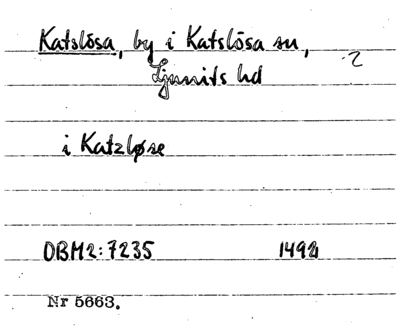 Katslösa, by i Katslösa sn, 2
Ljunits hd
i Katzløse
DBM2:7235 1492
Nr 5663.